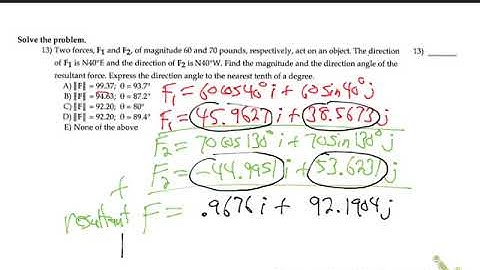 Solve the problem.
13) Two forces, F1 and F2, of magnitude 60 and 70 pounds, respectively, act on an object. The direction 13) ____
of F1 is N40°E and the direction of F2 is N40°W. Find the magnitude and the direction angle of the
resultant force. Express the direction angle to the nearest tenth of a degree.
A) ‖F‖ = 99.37; θ = 93.7°
B) ‖F‖ = 94.63; θ = 87.2°
C) ‖F‖ = 92.20; θ = 80°
D) ‖F‖ = 92.20; θ = 89.4°
E) None of the above
F1 = 60cos40°i + 60sin40°j
F1 = 45.9627i + 38.5673j
F2 = 70cos130°i + 70sin130°j
F2 = -44.9951i + 53.6231j
+
resultant F = .9676i + 92.1904j